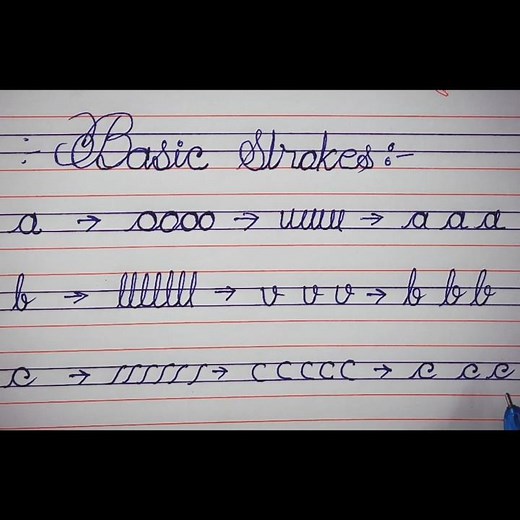 :- Basic Strokes :-
a → oooo → uuuu → a a a
b → llllllll → v v v → b b b
c → ıııııı → c c c c c → c c c